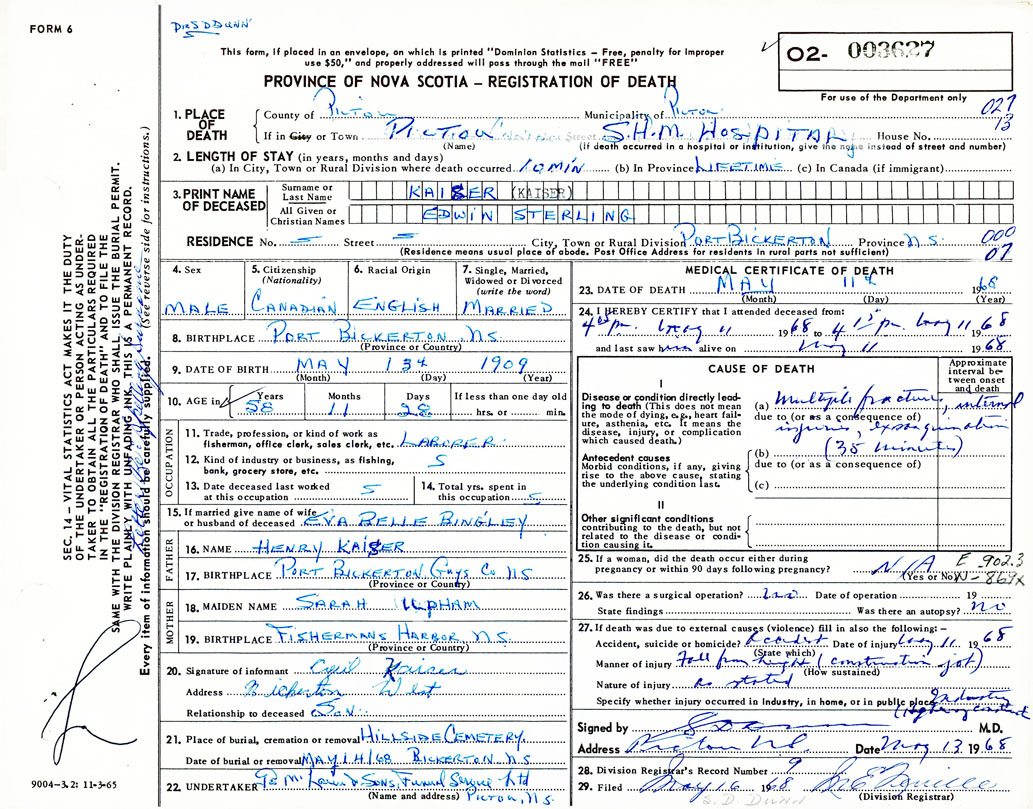 FORM 6
Dr S D DUNN
This form, if placed in an envelope, on which is printed "Dominion Statistics — Free, penalty for improper
use $50," and properly addressed will pass through the mail "FREE"
PROVINCE OF NOVA SCOTIA — REGISTRATION OF DEATH
02- 003627
For use of the Department only
027
13
1. PLACE OF DEATH
County of PICTOU Municipality of PICTOU
If in City or Town PICTOU Street S.H.M. HOSPITAL House No.
(Name) (If death occurred in a hospital or institution, give the name instead of street and number)
2. LENGTH OF STAY (in years, months and days)
(a) In City, Town or Rural Division where death occurred 10 MIN (b) In Province LIFETIME (c) In Canada (if immigrant)
3. PRINT NAME OF DECEASED
Surname or Last Name KAISER (KAISER)
All Given or Christian Names EDWIN STERLING
RESIDENCE No. Street City, Town or Rural Division PORT BICKERTON Province N.S.
(Residence means usual place of abode. Post Office Address for residents in rural parts not sufficient)
000
07
4. Sex 5. Citizenship (Nationality) 6. Racial Origin 7. Single, Married, Widowed or Divorced (write the word)
MALE CANADIAN ENGLISH MARRIED
8. BIRTHPLACE PORT BICKERTON, N.S.
(Province or Country)
9. DATE OF BIRTH MAY 13th 1909
(Month) (Day) (Year)
10. AGE in Years Months Days If less than one day old
58 11 28 hrs. or min.
OCCUPATION
11. Trade, profession, or kind of work as
fisherman, office clerk, sales clerk, etc. LABORER
12. Kind of industry or business, as fishing,
bank, grocery store, etc.
13. Date deceased last worked
at this occupation
14. Total yrs. spent in
this occupation
15. If married give name of wife
or husband of deceased EVA BELLE BINGLEY
FATHER
16. NAME HENRY KAISER
17. BIRTHPLACE PORT BICKERTON GUYS CO N.S
(Province or Country)
MOTHER
18. MAIDEN NAME SARAH UPHAM
19. BIRTHPLACE FISHERMANS HARBOR, N.S.
(Province or Country)
20. Signature of informant Cyril Kaiser
Address Bickerton West
Relationship to deceased Son
21. Place of burial, cremation or removal HILLSIDE CEMETERY
Date of burial or removal MAY 14/68 BICKERTON N.S.
22. UNDERTAKER & Sons, Funeral Service Ltd
(Name and address) PICTOU, N.S.
9004—3.2: 11-3-65
MEDICAL CERTIFICATE OF DEATH
23. DATE OF DEATH MAY 11th 1968
(Month) (Day) (Year)
24. I HEREBY CERTIFY that I attended deceased from:
pm. May 11 1968 to 4 15 pm. May 11 1968
and last saw him alive on May 11 1968
CAUSE OF DEATH
Approximate interval between onset and death
I
Disease or condition directly leading to death (This does not mean the mode of dying, e.g., heart failure, asthenia, etc. It means the disease, injury, or complication which caused death.)
(a) Multiple fractures, internal
due to (or as a consequence of)
injuries, exsanguination
(b) (35 minutes)
due to (or as a consequence of)
(c)
Antecedent causes
Morbid conditions, if any, giving rise to the above cause, stating the underlying condition last.
II
Other significant conditions
contributing to the death, but not related to the disease or condition causing it.
25. If a woman, did the death occur either during
pregnancy or within 90 days following pregnancy? N/A
(Yes or No)
E 902.3
N-869x
26. Was there a surgical operation? no Date of operation 19
State findings Was there an autopsy? no
27. If death was due to external causes (violence) fill in also the following:—
Accident, suicide or homicide? Accident Date of injury May 11 1968
(State which)
Manner of injury Fall from height (construction job)
(How sustained)
Nature of injury as stated
Specify whether injury occurred in Industry, in home, or in public place Industry
Signed by M.D.
Address Pictou N.S. Date May 13 1968
28. Division Registrar's Record Number 9
29. Filed May 16 1968
(Division Registrar)
S. D. Dunn
SEC. 14 – VITAL STATISTICS ACT MAKES IT THE DUTY
OF THE UNDERTAKER OR PERSON ACTING AS UNDER-
TAKER TO OBTAIN ALL THE PARTICULARS REQUIRED
IN THE "REGISTRATION OF DEATH" AND TO FILE THE
SAME WITH THE DIVISION REGISTRAR WHO SHALL ISSUE THE BURIAL PERMIT.
WRITE PLAINLY WITH UNFADING INK, THIS IS A PERMANENT RECORD.
Every item of information should be carefully supplied. (See reverse side for instructions.)